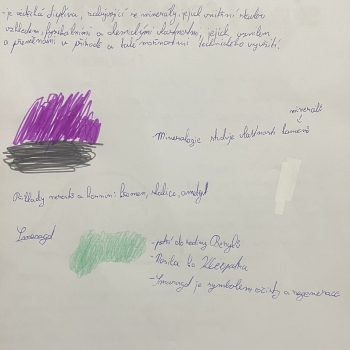 -je vědecká disciplína, zabývající se minerály, jejich vnitřní stavbou
vzhledem, fyzikálními a chemickými vlastnostmi, jejich vznikem
a proměnami v přírodě a také možnostmi technického využití.
minerálů
-Mineralogie studuje vlastnosti kamenů
Příklady nerostů a hornin: křemen, slídice, ametyst
Smaragd
-patří do rodiny Berylů
-Nosila ho Kleopatra
-Smaragd je symbolem očisty a regenerace